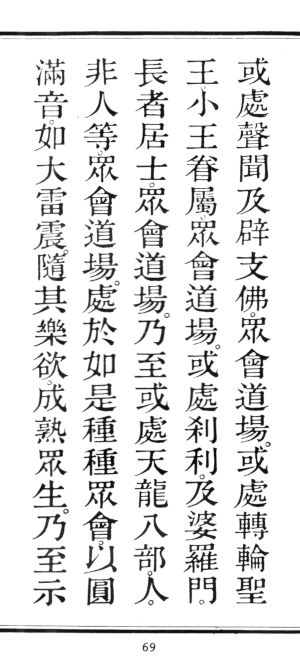 或處聲聞及辟支佛。眾會道場。或處轉輪聖
王。小王眷屬。眾會道場。或處剎利。及婆羅門。
長者居士。眾會道場。乃至或處天龍八部。人。
非人等。眾會道場。處於如是種種眾會。以圓
滿音。如大雷震。隨其樂欲。成熟眾生。乃至示
69